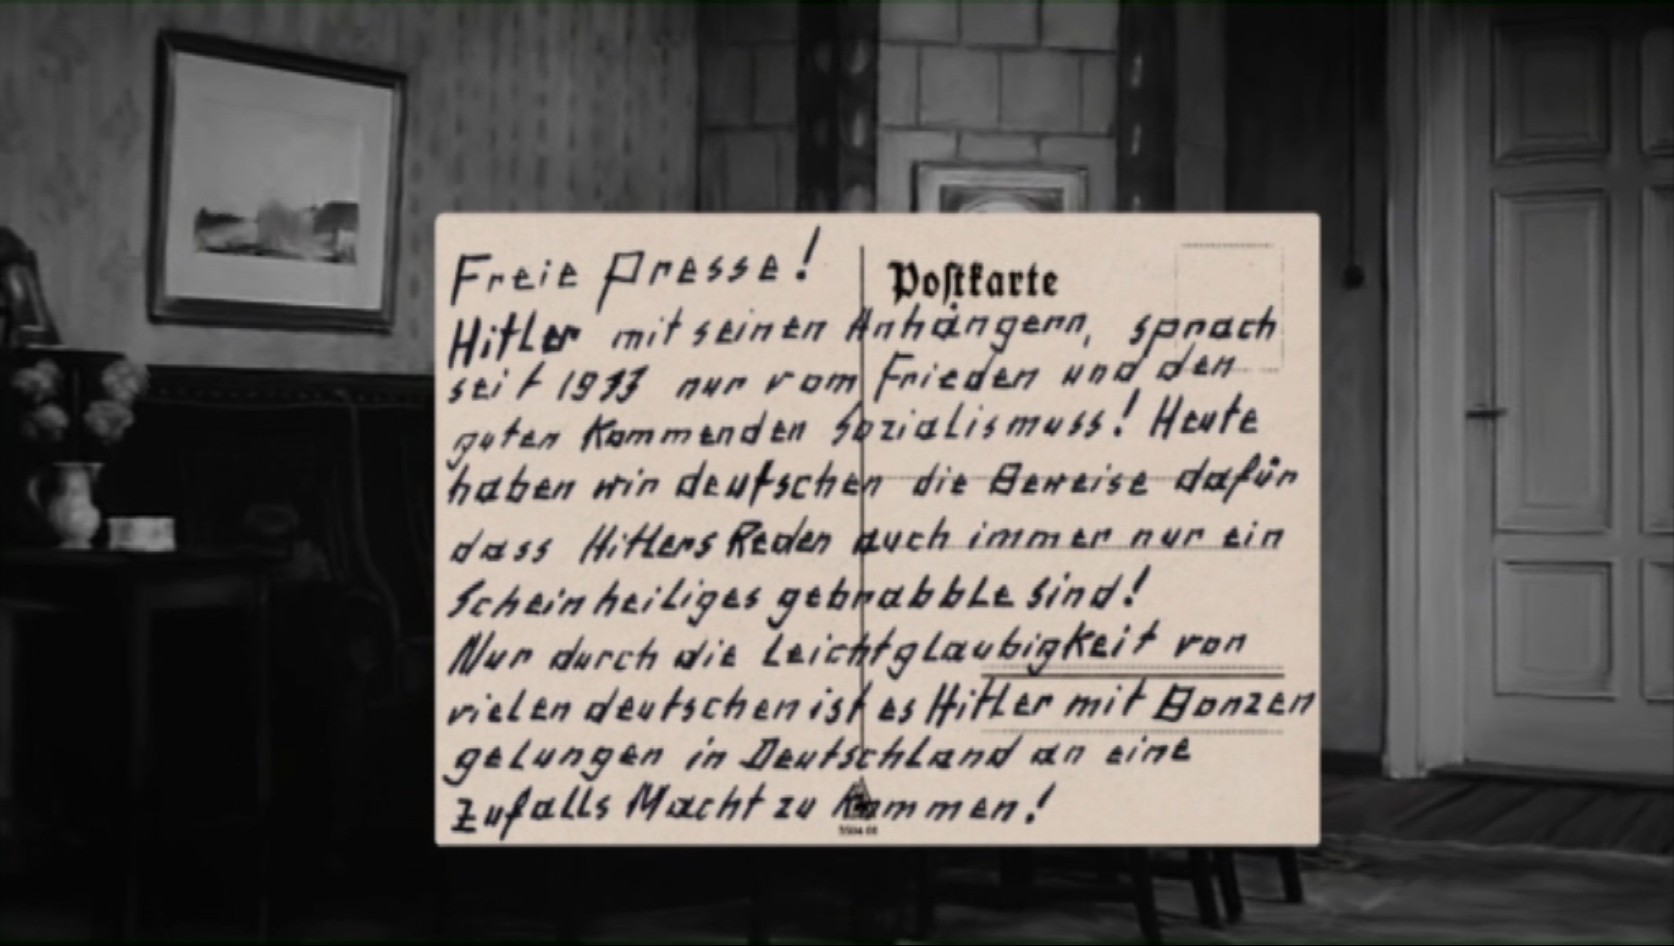 Freie Presse!
Postkarte
Hitler mit seinen Anhängern, sprach
seit 1933 nur vom Frieden und den
guten Kommenden Sozialismuss! Heute
haben wir deutschen die Beweise dafür
dass Hitlers Reden auch immer nur ein
Scheinheiliges gebrabble sind!
Nur durch die Leichtglaubigkeit von
vielen deutschen ist es Hitler mit Bonzen
gelungen in Deutschland an eine
Zufalls Macht zu Kommen!